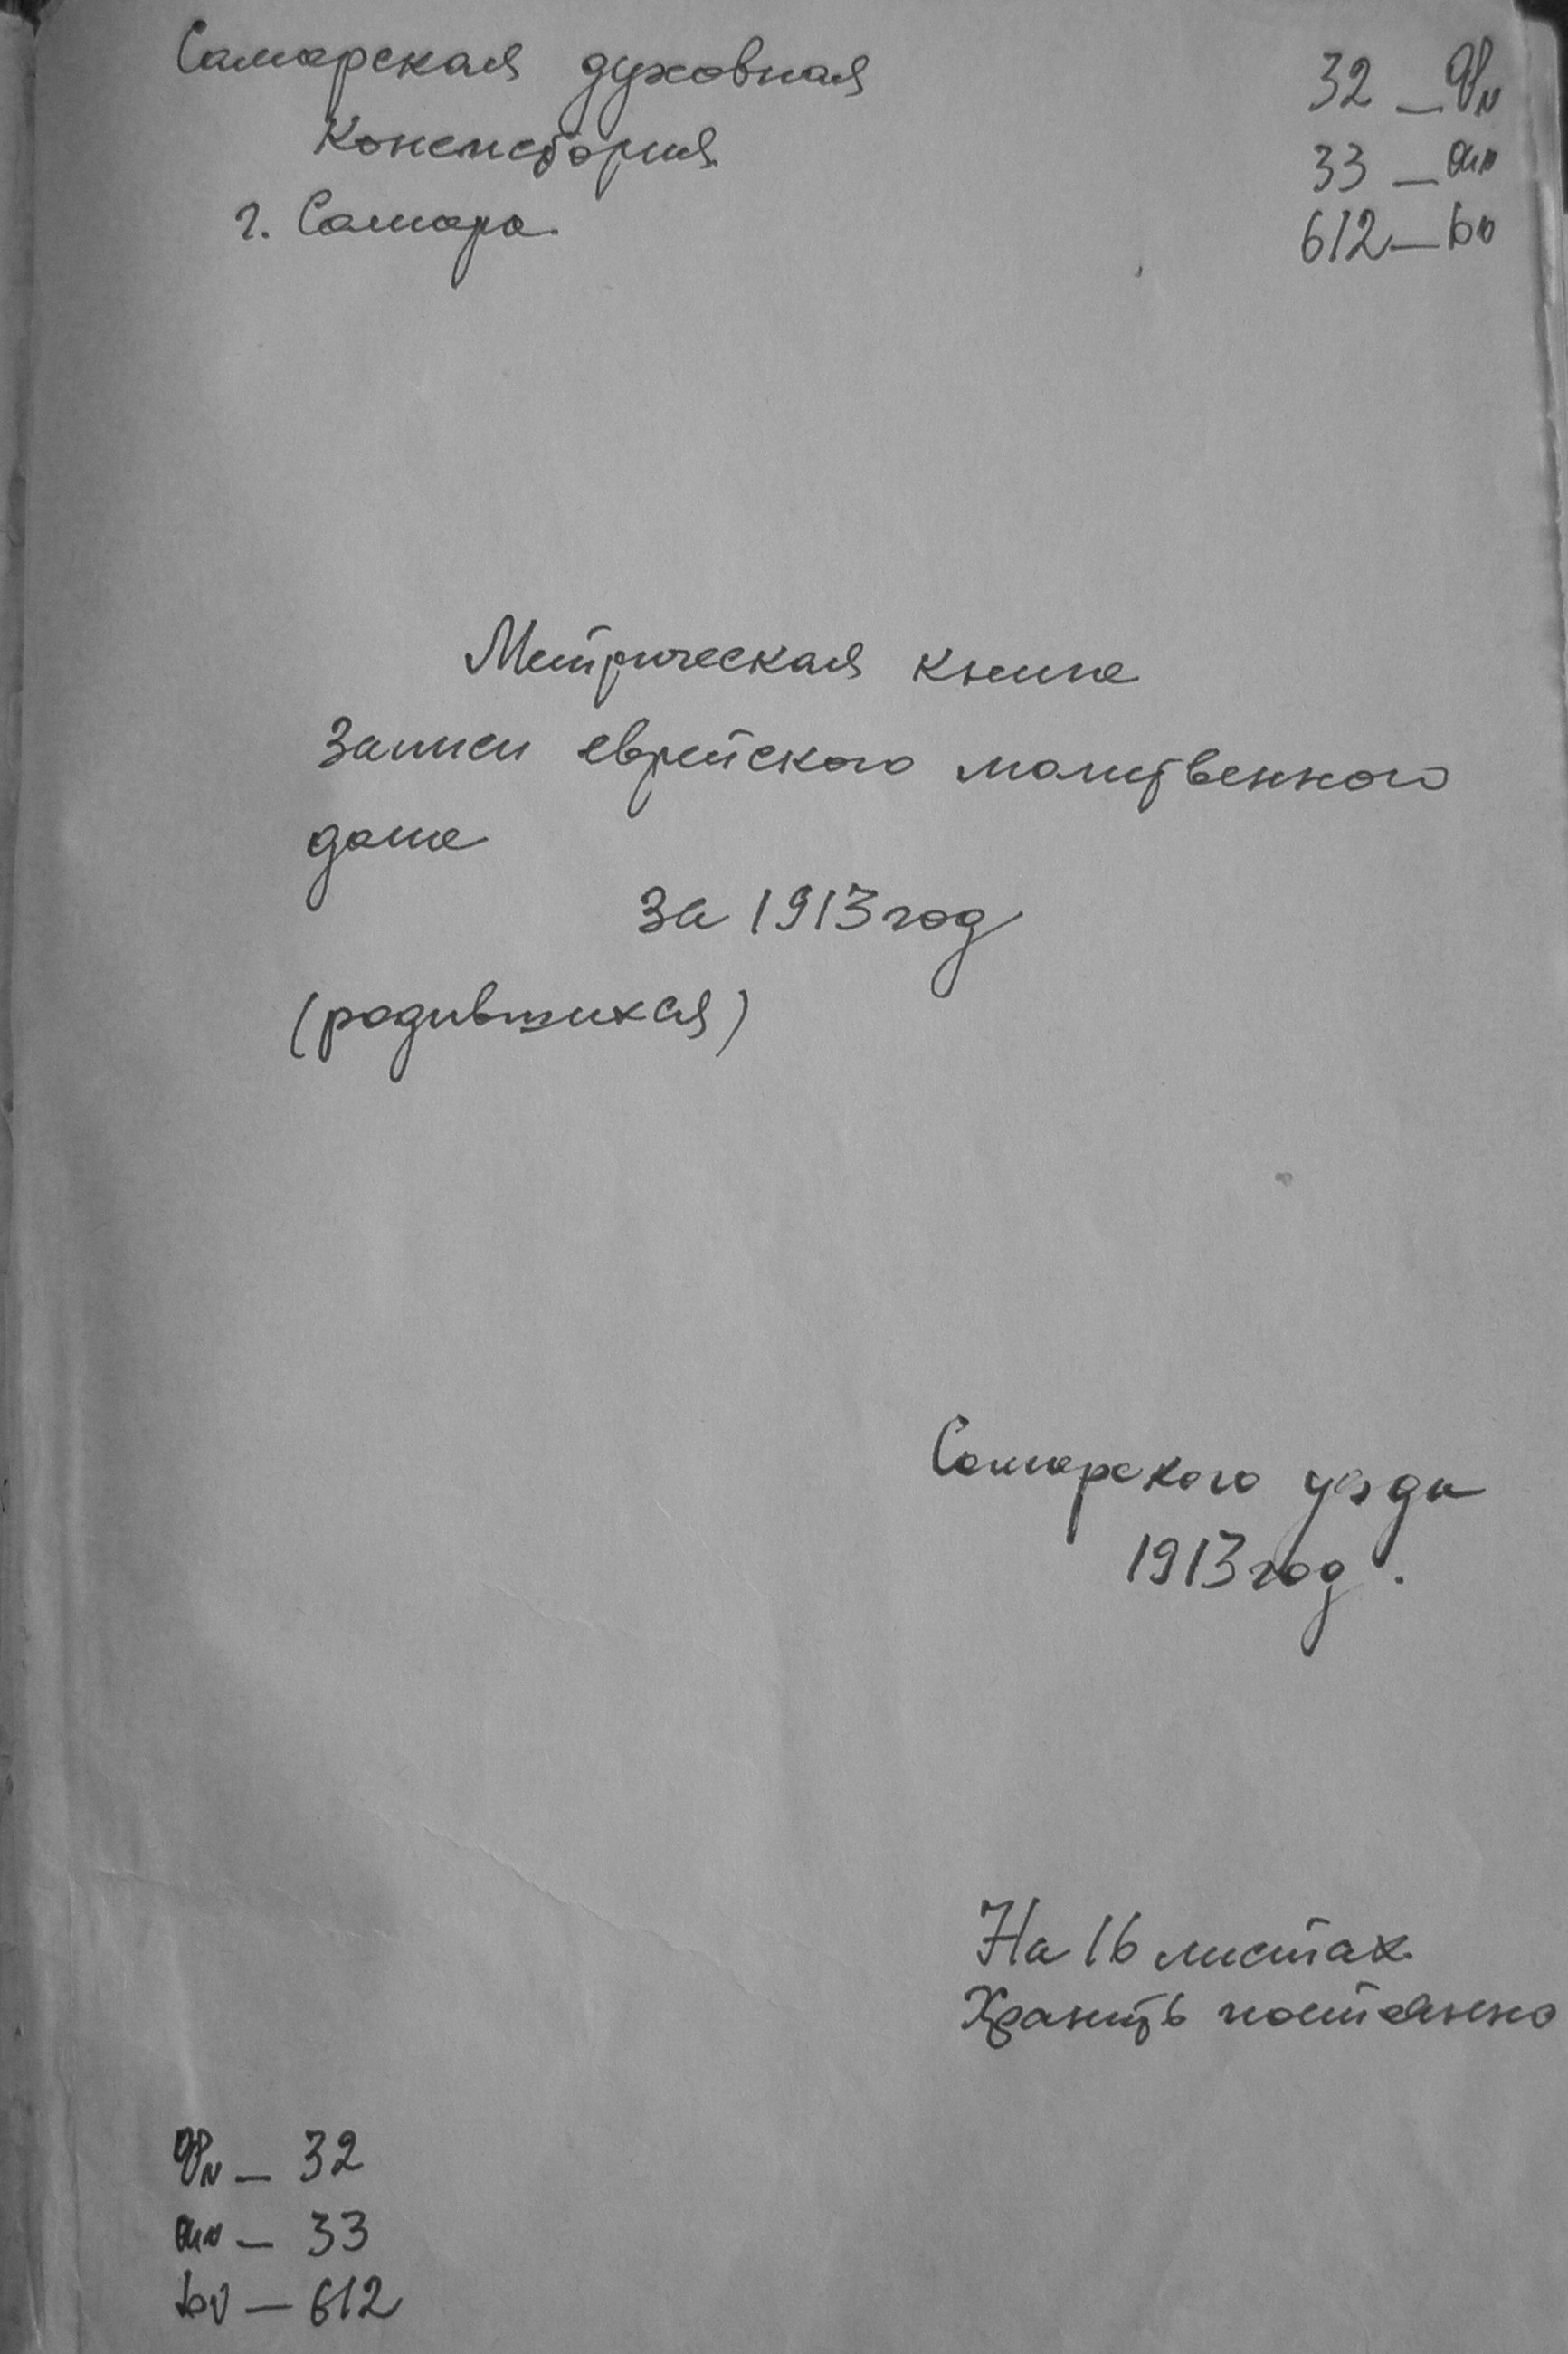 Самарская духовная
Консистория
г. Самара
32 —
33 —
612 —
Метрическая книга
записи еврейского молитвенного
дома
за 1913 год
(родившихся)
Самарского уезда
1913 год.
На 16 листах
Хранить постоянно
— 32
— 33
— 612